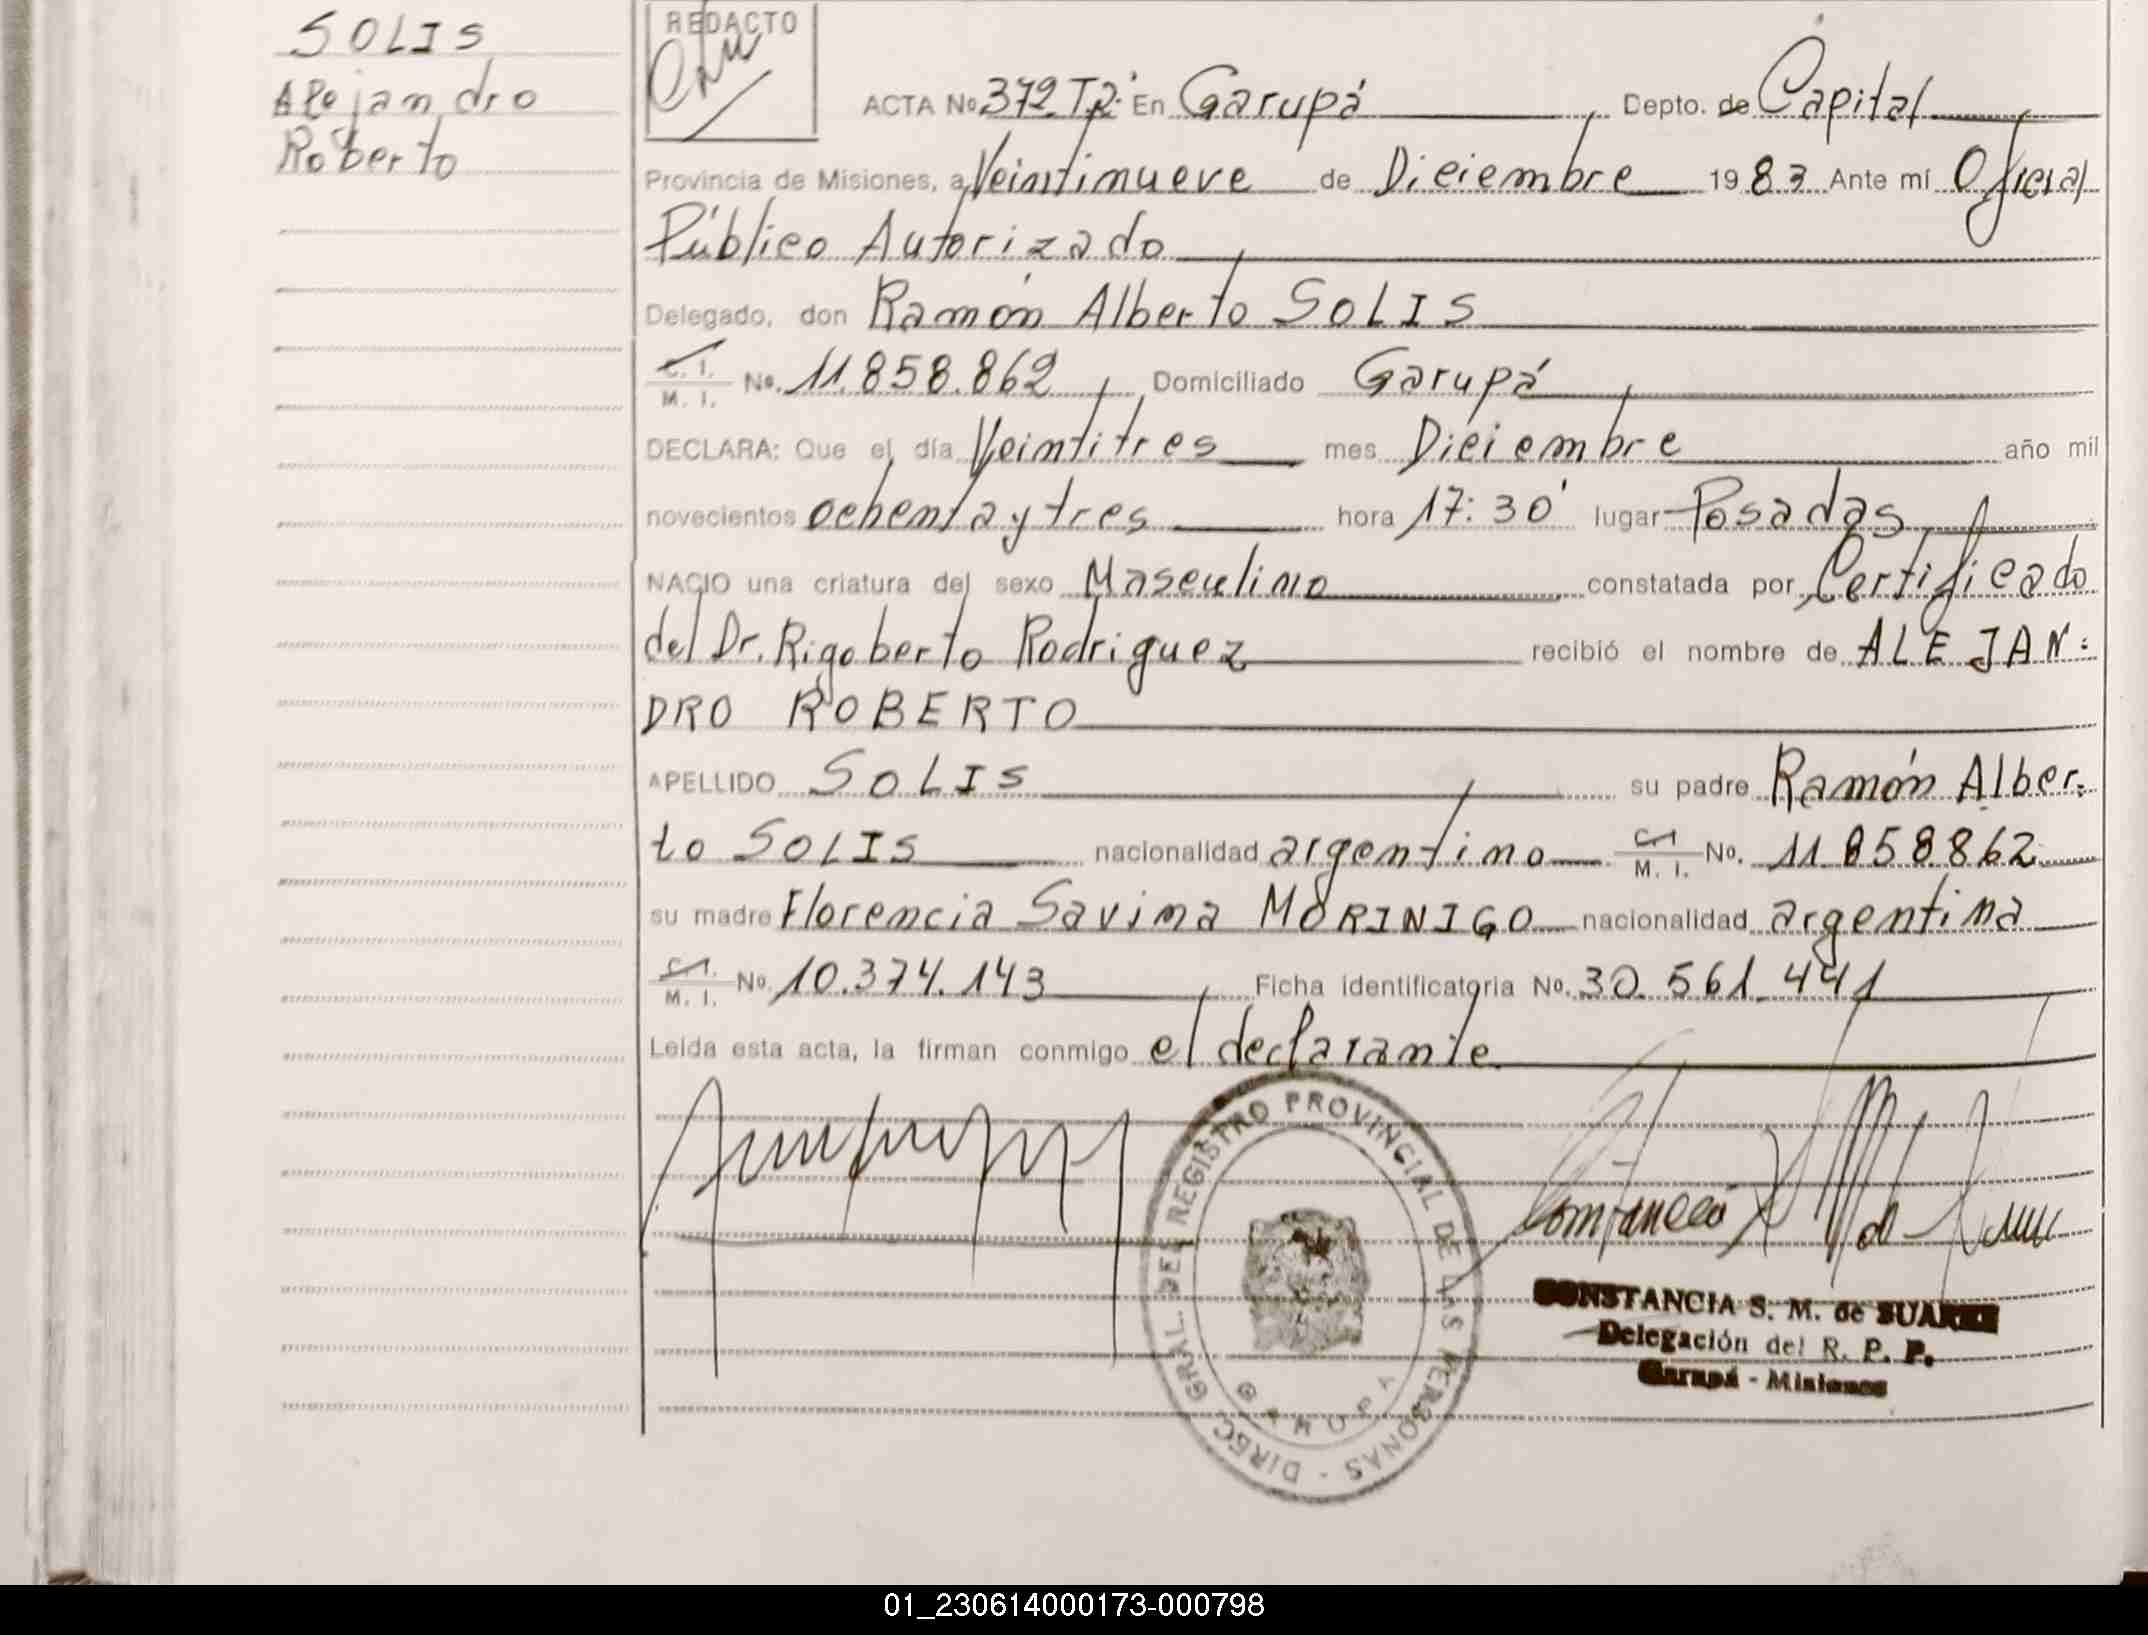 SOLIS
Alejandro
Roberto
REDACTO
ACTA No. 372 T2º En Garupá Depto. de Capital
Provincia de Misiones, a Veintinueve de Diciembre 1983 Ante mí Oficial
Público Autorizado
Delegado, don Ramón Alberto SOLIS
C. I. M. I. No. 11.858.862, Domiciliado Garupá
DECLARA: Que el día Veintitres mes Diciembre año mil
novecientos ochenta y tres hora 17:30' lugar Posadas
NACIO una criatura del sexo Masculino constatada por Certificado
del Dr. Rigoberto Rodriguez recibió el nombre de ALEJAN-
DRO ROBERTO
APELLIDO SOLIS su padre Ramón Alber-
to SOLIS nacionalidad argentino C.I. M. I. No. 11.858.862
su madre Florencia Savina MORINIGO nacionalidad argentina
C.I. M. I. No. 10.374.143 Ficha identificatoria No. 30.561.441
Leida esta acta, la firman conmigo el declarante
DIREC. GRAL. DEL REGISTRO PROVINCIAL DE LAS PERSONAS -
GARUPA
CONSTANCIA S. M. de SUAREZ
Delegación del R. P. P.
Garupá - Misiones
01_230614000173-000798